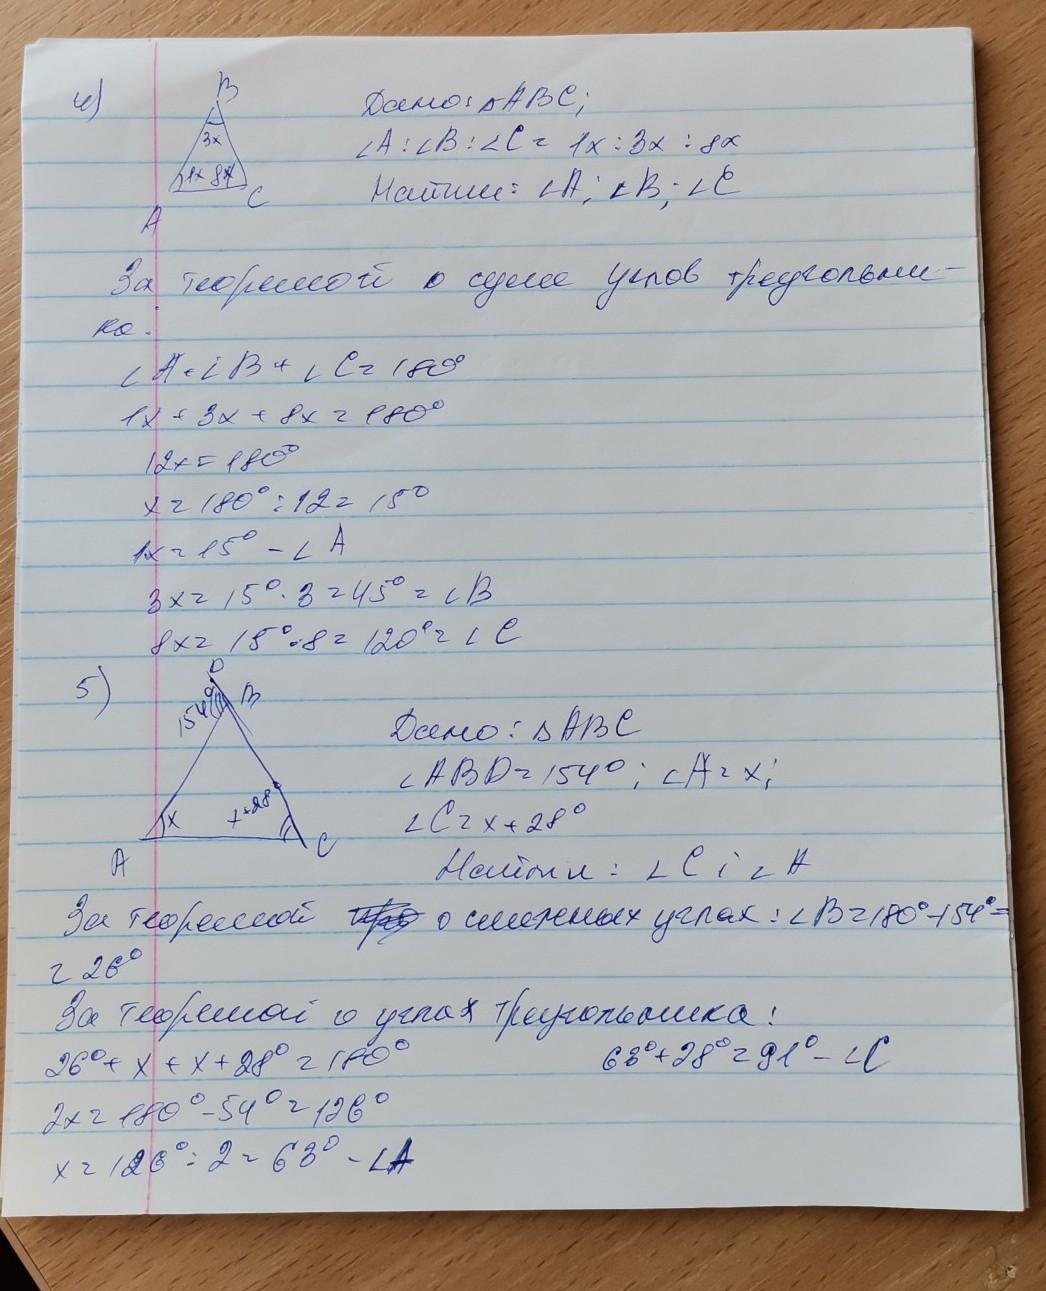 4)
B
3x
1x 8x
A
C
Дано: △ABC;
∠A:∠B:∠C = 1x:3x:8x
Найти: ∠A; ∠B; ∠C
За теоремой о суме углов треугольни-
ка.
∠A+∠B+∠C=180°
1x+3x+8x=180°
12x=180°
x=180°:12=15°
1x=15° - ∠A
3x=15°·3=45°=∠B
8x=15°·8=120°=∠C
5)
D
154°
B
x
x+28
A
C
Дано: △ABC
∠ABD=154°; ∠A=x;
∠C=x+28°
Найти: ∠C і ∠A
За теоремой о смежных углах: ∠B=180°-154°=
=26°
За теоремой о углах треугольника:
26°+x+x+28°=180°
63°+28°=91° - ∠C
2x=180°-54°=126°
x=126°:2=63° - ∠A